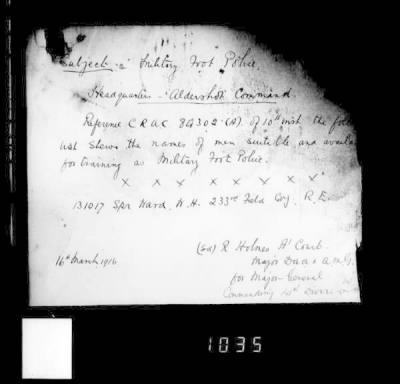 Subject :- Military Foot Police.
Headquarters - Aldershot Command
Reference C R A C 84302 (A) of 10th inst the foll
list shews the names of men suitable and availa
for training as Military Foot Police.
x x x x x x x x
131017 Spr Ward. W. H. 233rd Field Coy. R.E.
(sd) R Holmes A'Court
16th March 1916
Major D.A.A.
for Major-General
Commanding
1035